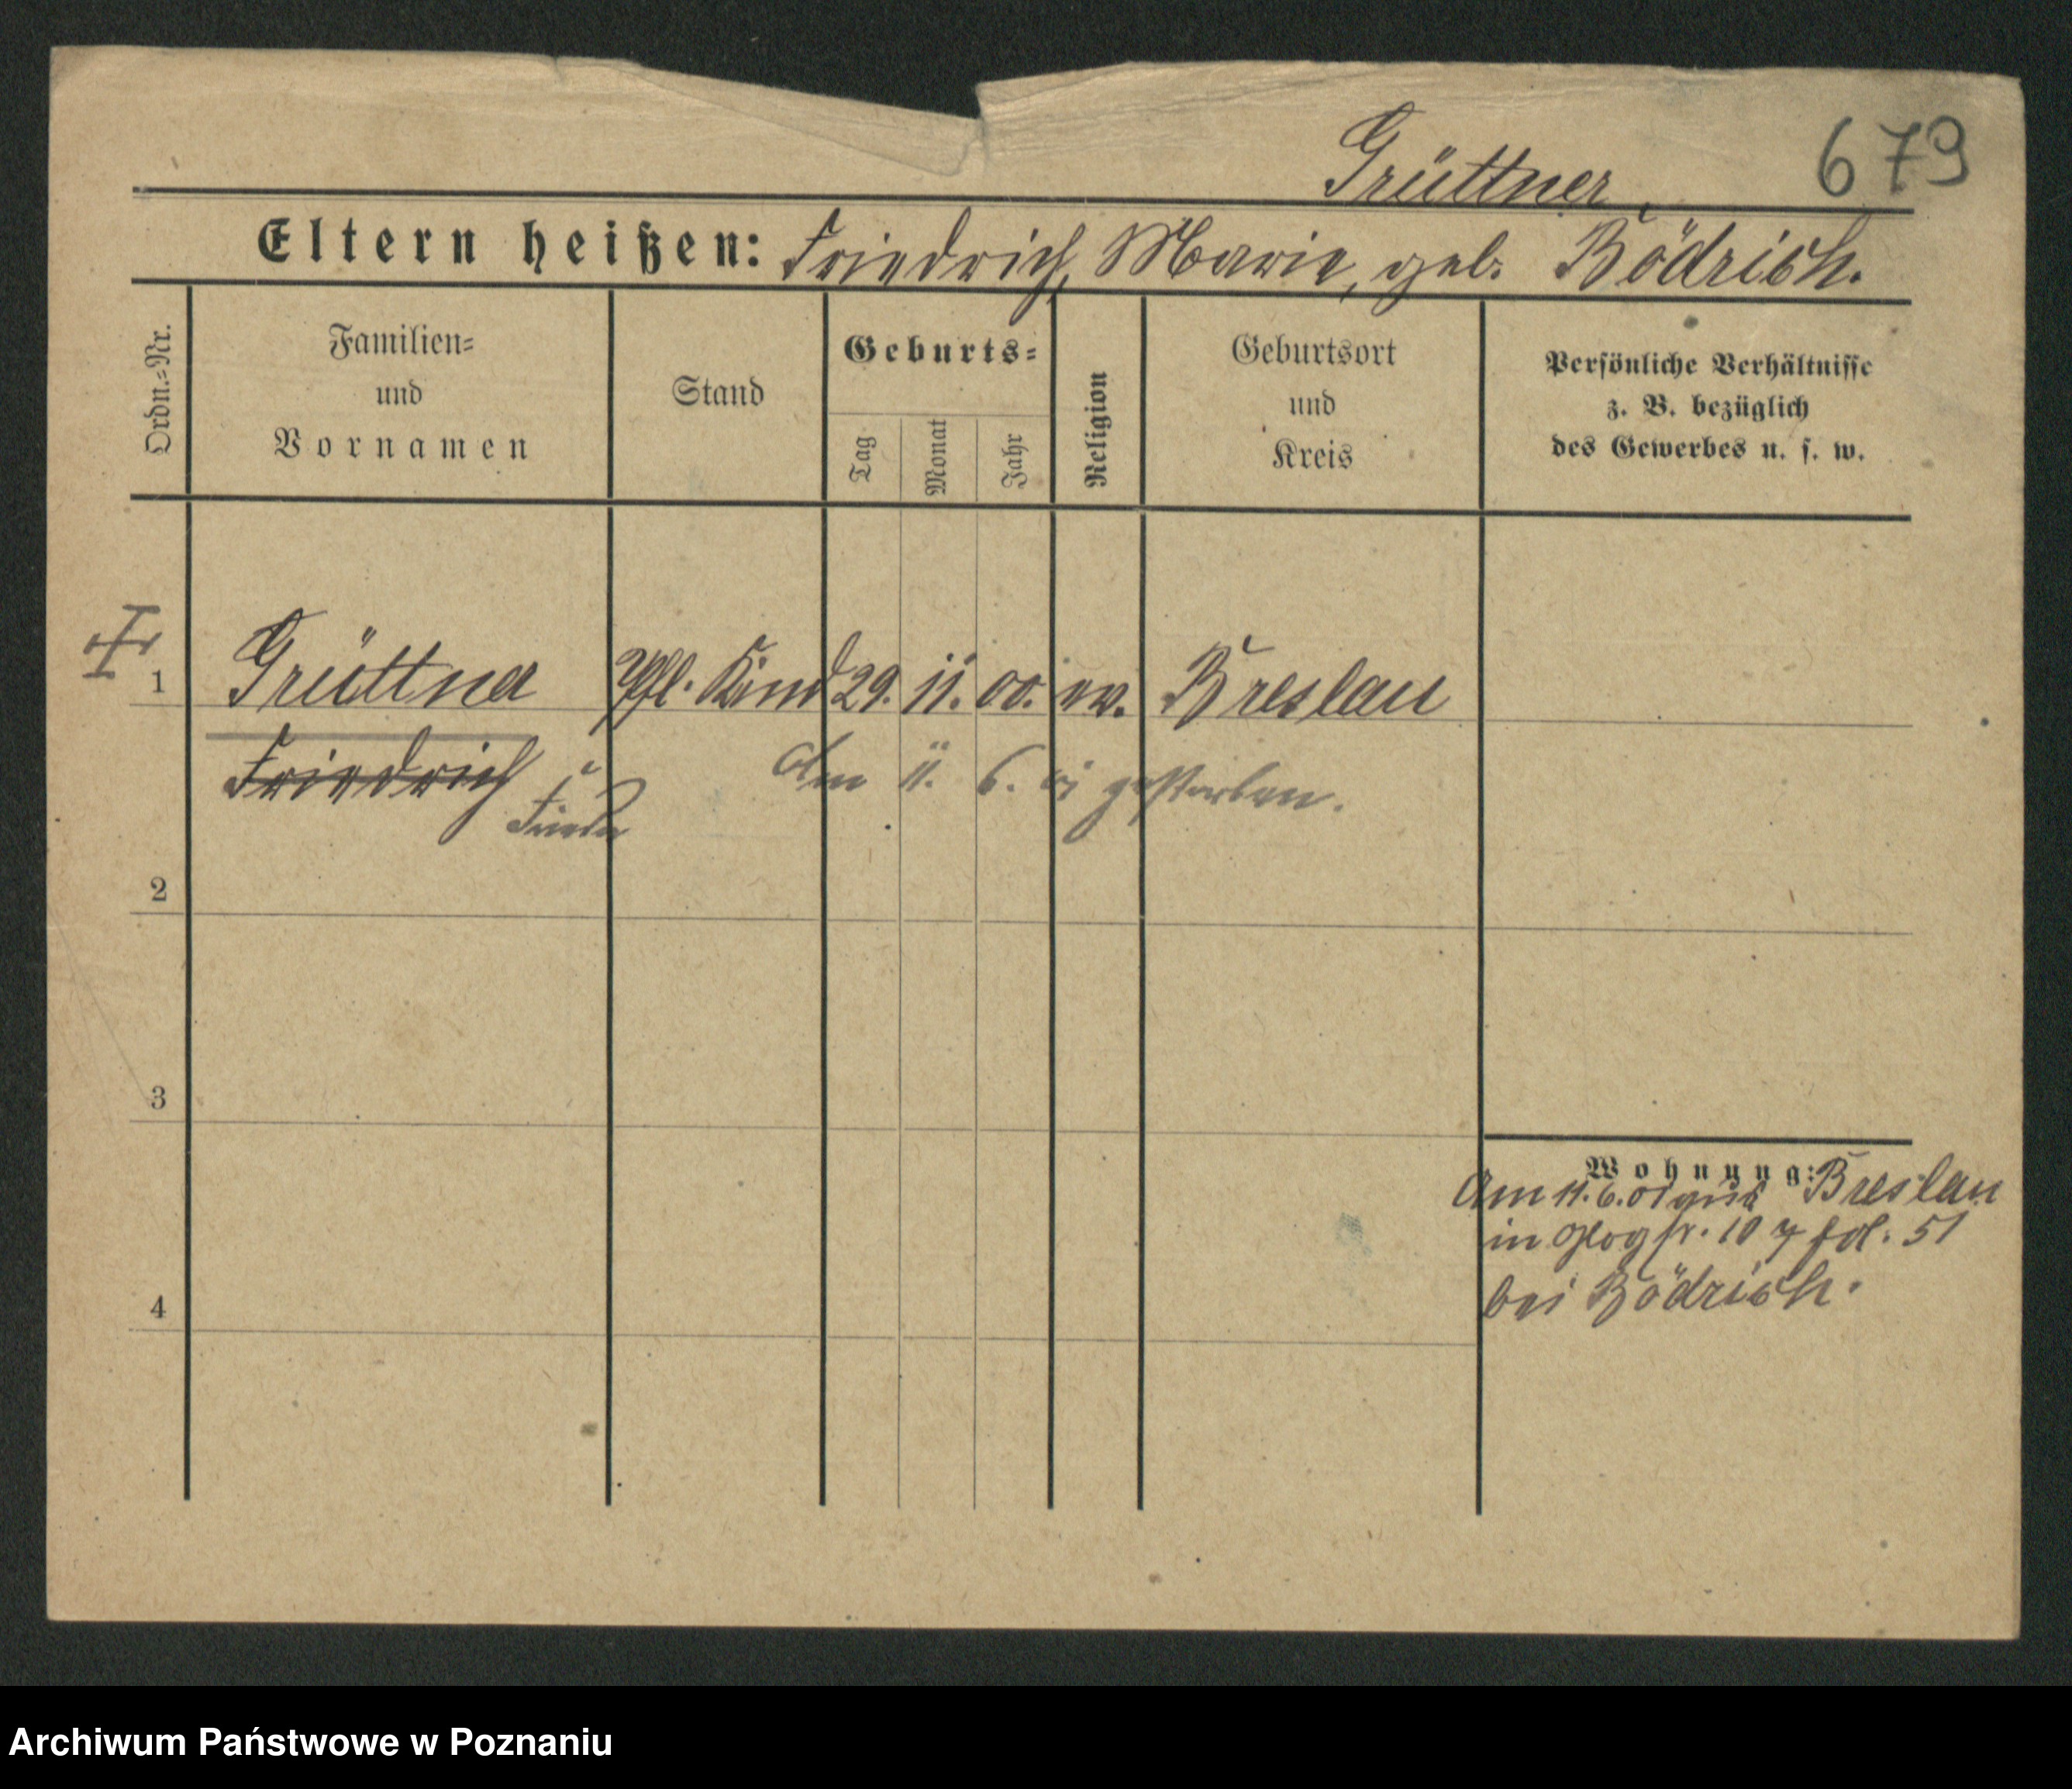 Grüttner, 679
Eltern heißen: Friedrich, Marie, geb. Bödrich.
Ordn.=Nr.
Familien=
und
Vornamen
Stand
Geburts=
Tag
Monat
Jahr
Religion
Geburtsort
und
Kreis
Persönliche Verhältnisse
z. B. bezüglich
des Gewerbes u. s. w.
1 Grüttner Pfl. Kind 29. 11. 00. ev. Breslau
Friedrich
Am 11. 6. 01 gestorben.
2
3
4
Wohnung:
Am 11.6.01 aus Breslau
in Glogstr. 107 fol. 51
bei Bödrich.
Archiwum Państwowe w Poznaniu